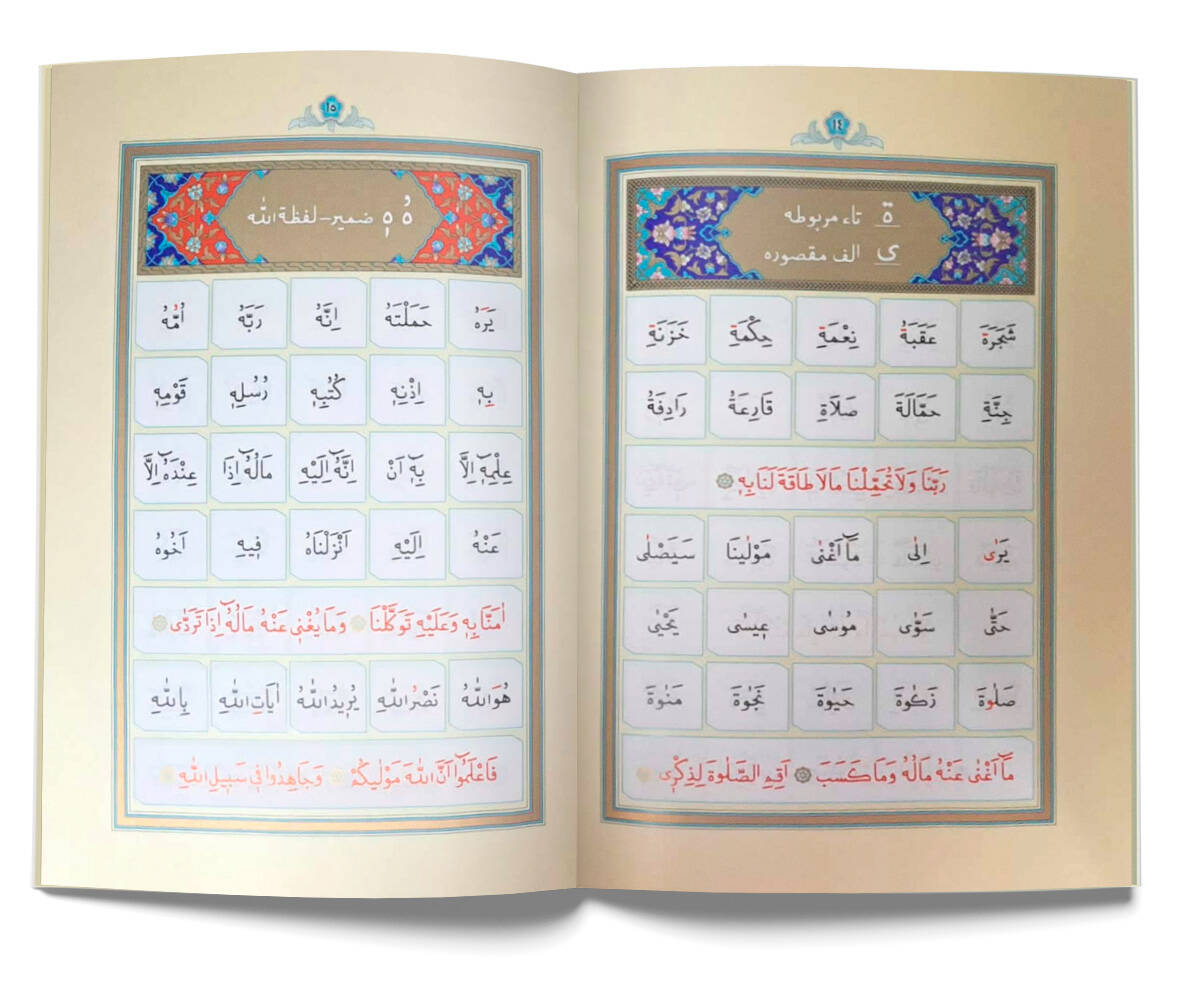 ١٤
ة تاء مربوطه
ى الف مقصوره
شَجَرَةَ عَقَبَةُ نِعْمَةِ حِكْمَةِ خَزَنَةِ
جِنَّةِ حَمَّالَةَ صَلَاةِ قَارِعَةُ رَادِفَةُ
رَبَّنَا وَلَا تُحَمِّلْنَا مَالَا طَاقَةَ لَنَا بِهٖ
يَرٰى اِلٰى مَٓا اَغْنٰى مَوْلٰينَا سَيَصْلٰى
حَتّٰى سَوّٰى مُوسٰى عٖيسٰى يَحْيٰى
صَلٰوةَ زَكٰوةَ حَيٰوةَ نَجٰوةَ مَنٰوةَ
مَٓا اَغْنٰى عَنْهُ مَالُهُ وَمَا كَسَبَ ۞ اَقِمِ الصَّلٰوةَ لِذِكْرٖى
١٥
هُ هٖ ضمير – لفظة الله
يَرَهُ حَمَلَتْهُ اِنَّهُ رَبَّهُ اُمُّهُ
بِهٖ اِذْنِهٖ كُتُبِهٖ رُسُلِهٖ قَوْمِهٖ
عِلْمِهٖٓ اِلَّا بِهٖٓ اَنْ اِنَّهُٓ اِلَيْهِ مَالُهُٓ اِذَا عِنْدَهُٓ اِلَّا
عَنْهُ اِلَيْهِ اَنْزَلْنَاهُ فٖيهِ اَخُوهُ
اٰمَنَّا بِهٖ وَعَلَيْهِ تَوَكَّلْنَا ۞ وَمَا يُغْنٖى عَنْهُ مَالُهُٓ اِذَا تَرَدّٰى
هُوَ اللّٰهُ نَصْرُ اللّٰهِ يُرٖيدُ اللّٰهُ اٰيَاتِ اللّٰهِ بِاللّٰهِ
فَاعْلَمُٓوا اَنَّ اللّٰهَ مَوْلٰيكُمْ ۞ وَجَاهِدُوا فٖى سَبٖيلِ اللّٰهِ